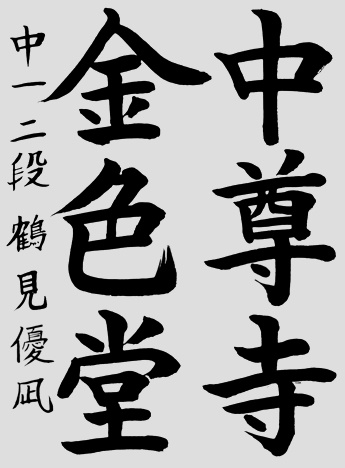 中尊寺
金色堂
中一二段 鶴見優凪